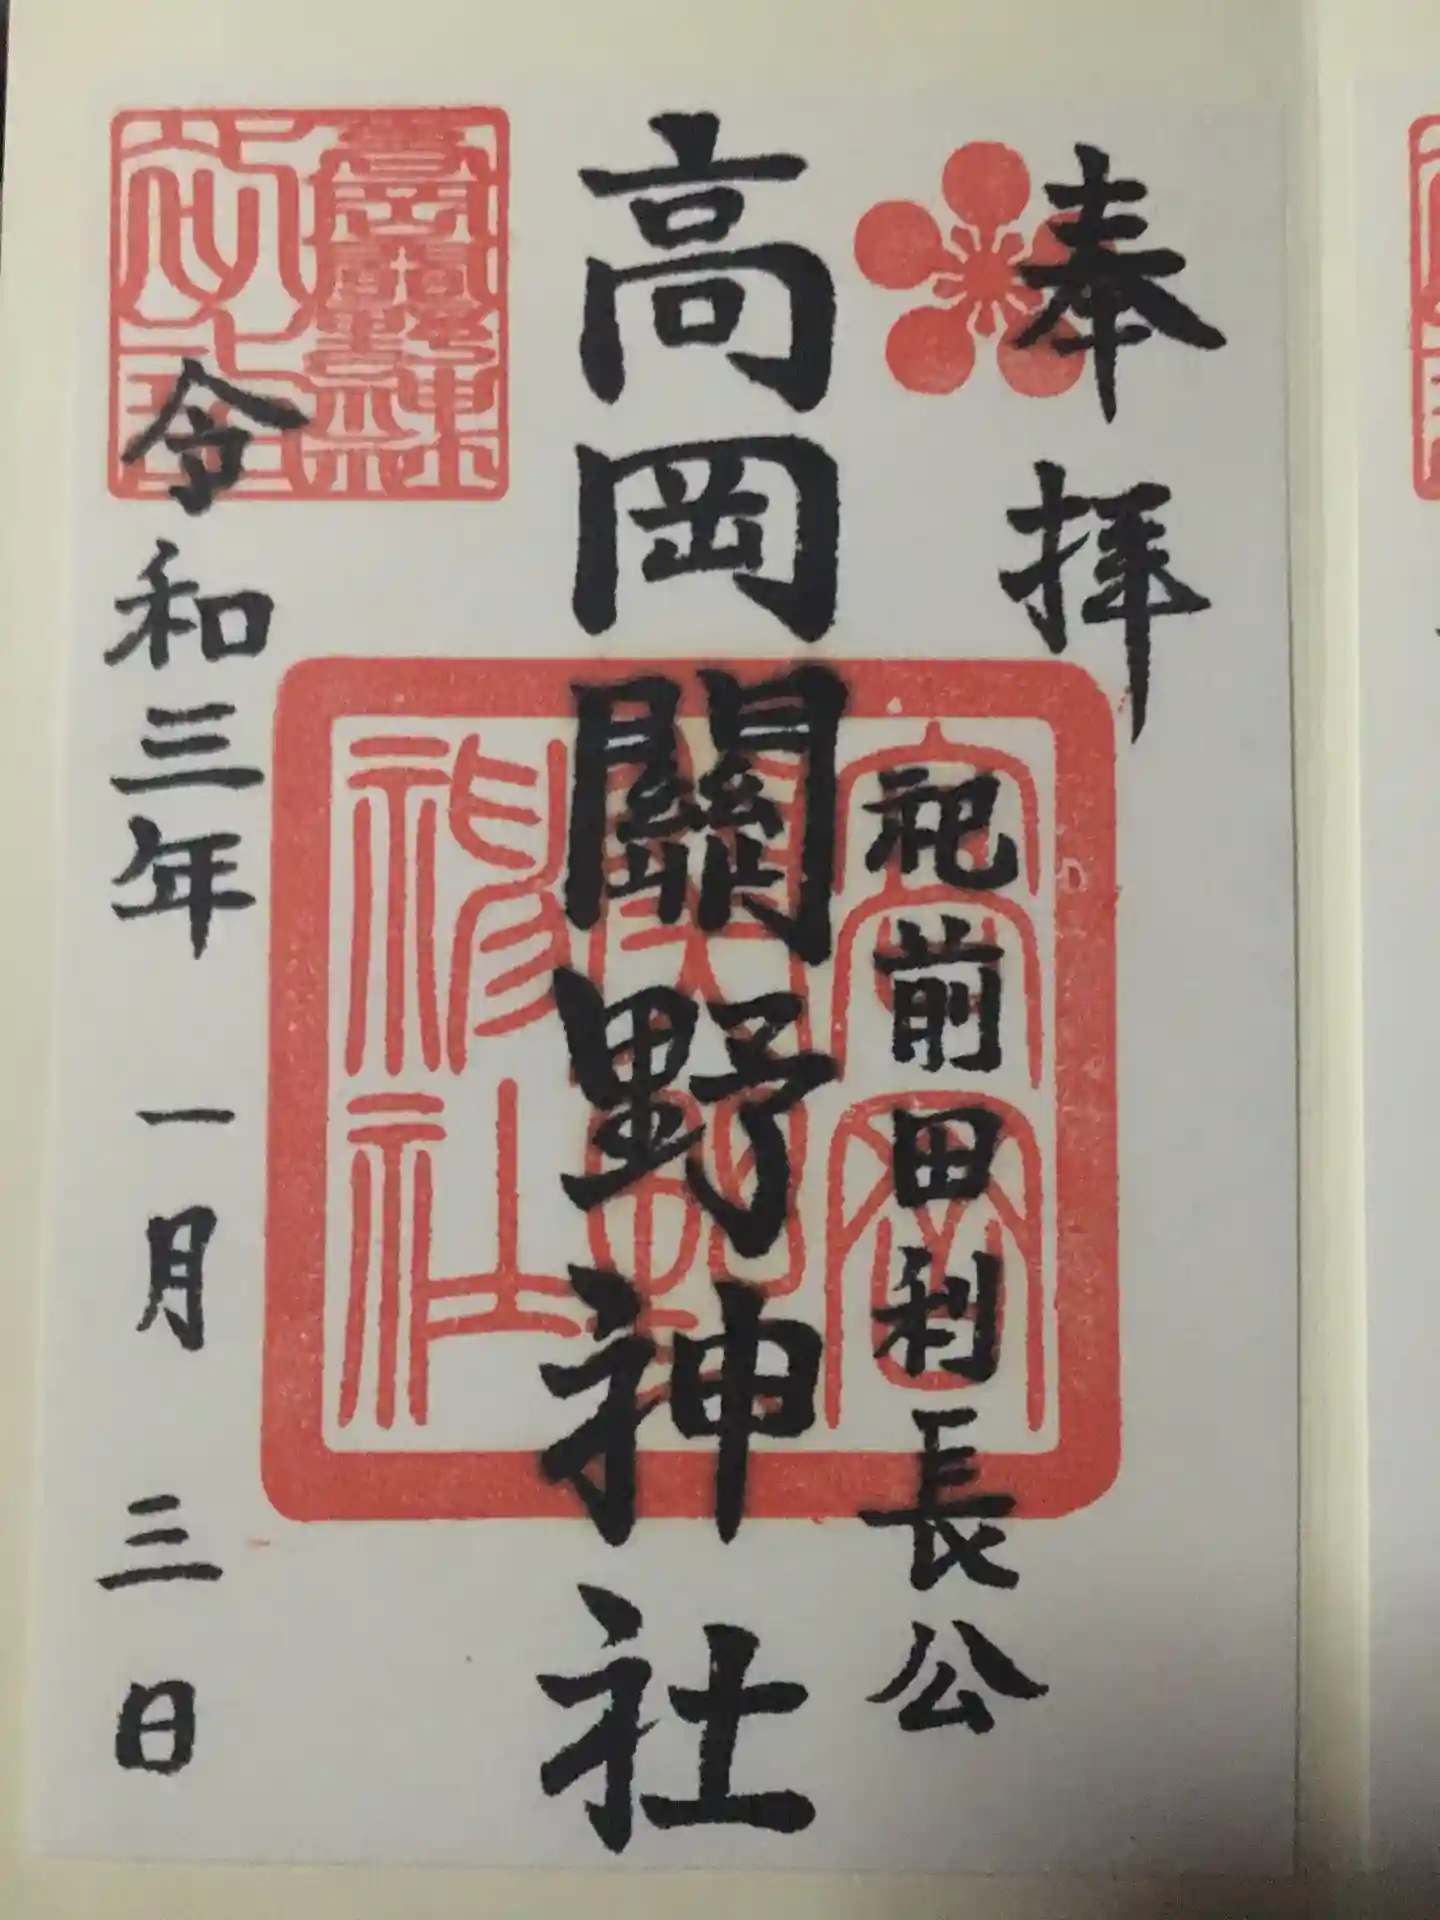 奉拝
祀前田利長公
高岡關野神社
令和三年一月三日